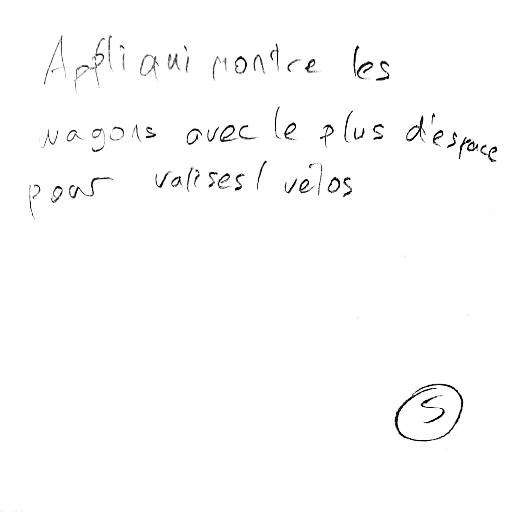 Appli qui montre les
wagons avec le plus d'espace
pour valises / vélos
S